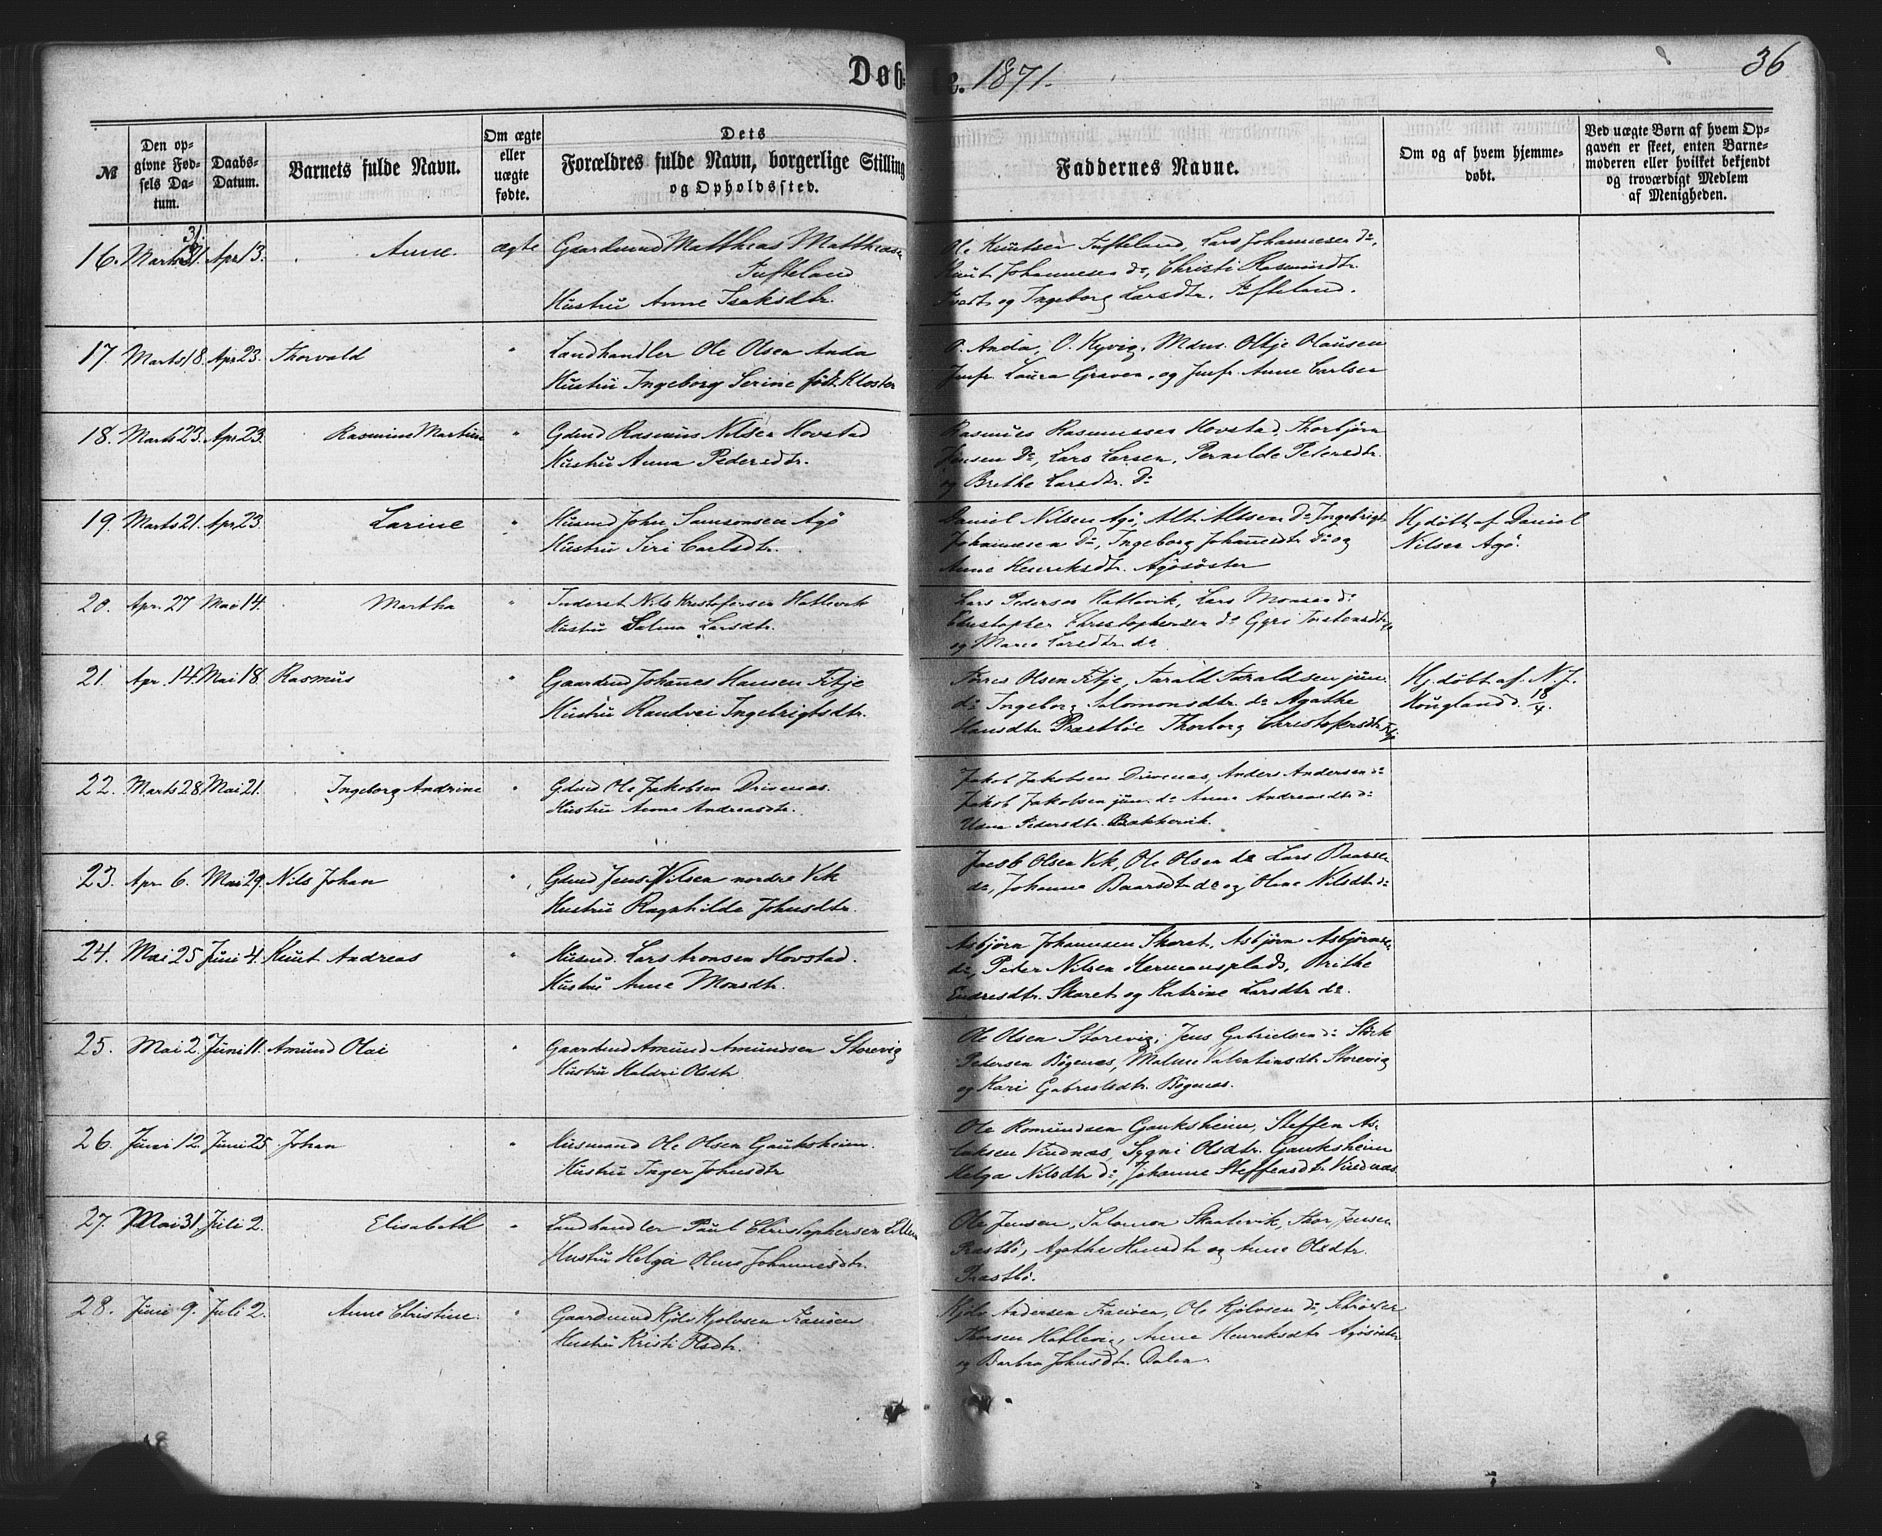 Døb- e. 1871. 36
№
Den op-
givne Fød-
sels Da-
tum.
Daabs-
Datum.
Barnets fulde Navn.
Om ægte
eller
uægte
fødte.
Dets
Forældres fulde Navn, borgerlige Stilling
og Opholdssted.
Faddernes Navne.
Om og af hvem hjemme-
døbt.
Ved uægte Børn af hvem Op-
gaven er skeet, enten Barne-
moderen eller hvilket bekjendt
og troværdigt Medlem
af Menigheden.
16. Marts 31 Apr 13. Anne. ægte Gaardmand Matthias Matthias
Tufteland
Hustru Anne Isaksdtr.
Ole Knutsen Tufteland, Lars Johannesen do,
Knut Johannesen do, Christi Rasmusdtr.
og Ingeborg Larsdtr. Tufteland.
17. Marts 18. Apr 23. Thorvald " Landhandler Ole Olsen Anda
Hustru Ingeborg Serine født Kloster
O. Anda, O. Kyvig, Mdm. Oltje Clausen
Jmfr. Laura Graven, og Jmfr. Anne Carlsen
18. Marts 23. Apr 23. Rasmus Martin " Gdmd Rasmus Nilsen Hovstad
Hustru Anna Pedersdtr.
Rasmus Rasmussen Hovstad, Thorbjørn
Jensen do, Lars Larsen, Pernilde Petersdtr.
og Brethe Larsdtr. do
19. Marts 21. Apr 23. Larine " Husmd John Samsonsen Agø
Hustru Siri Carlsdtr.
Daniel Nilsen Agø, Alt Altsen do Ingebrigt
Johannesen do, Ingeborg Johannesdtr do og
Anne Henriksdtr. Agøsøster
Hj. døbt af Daniel
Nilsen Agø.
20. Apr. 27 Mai 14. Martha " Inderst Nils Kristofersen Hatlevik
Hustru Salma Larsdtr.
Lars Pedersen Hatlevik, Lars Monsen do
Christopher Christophersen do Gyri Torstensdtr
og Maren Larsdtr. do
21. Apr. 14. Mai 18 Rasmus " Gaardmd Johanes Hansen Fitje
Hustru Randvei Ingebrigtsdtr.
Torres Olsen Fitje, Tarald Taraldsen jun.
do Ingeborg Salomonsdtr. do Agathe
Hansdtr Præstbøe Thorborg Christofersdtr Fitje
Hj. døbt af N. J.
Hougland d. 18/4.
22. Marts 28. Mai 21. Ingeborg Andrine " Gdmd Ole Jakobsen Drivenæs.
Hustru Anne Andreasdtr.
Jakob Jakobsen Drivenæs, Anders Andersen do
Jakob Jakobsen jun. do Anne Andreasdtr do
Pedersdtr. Bakkervik.
23. Apr 6. Mai 29. Nils Johan " Gdmd Jens Nilsen nordre Vik
Hustru Ragnhilde Johnsdtr.
Jacob Olsen Vik, Ole Olsen do Lars Baarsen
do, Johanna Baarsdtr. do og Oline Nilsdtr. do
24. Mai 25 Juni 4. Knut Andreas " Husmd. Lars Aronsen Hovstad.
Hustru Anne Monsdtr.
Asbjørn Johannesen Skaret, Asbjørn Asbjørnsen
do, Peder Nilsen Hermansplads, Brithe
Endresdtr. Skaret og Katrine Larsdtr do.
25. Mai 2. Juni 11. Amund Olai " Gaardmd Amund Amundsen Storevig
Hustru Haldri Olsdtr
Ole Olsen Storevig, Jens Gabrielsen do Størk
Pedersen Bøgenæs, Malene Valentinsdtr. Storevig
og Kari Gabrielsdtr. Bøgenæs.
26. Juni 12. Juni 25 Johan " Husmand Ole Olsen Gauksheim.
Hustru Inger Johnsdtr
Ole Romundsen Gauksheim, Steffen As-
laksen Vindnæs, Sygni Olsdtr. Gauksheim
Helga Nilsdtr do, Johanne Steffensdtr Vindnæs
27. Mai 31. Juli 2. Elisabeth " Landhandler Paul Christophersen
Hustru Helga Oline Johannesdtr.
Ole Jensen, Salomon Skaatevik, Thor Jensen
Præstbø, Agathe Hansdtr og Anne Olsdtr.
Præstbø.
28. Juni 9. Juli 2. Anne Christine. " Gaardmand Kjølv Kjølvsen Tranøen
Hustru Kristi Olsdtr.
Kjølv Andersen Tranøen, Ole Kjølvsen do,
Thorsen Hatlem, Anne Henriksdtr. Agøsøster
og Barbra Johnsdtr. Dalen.